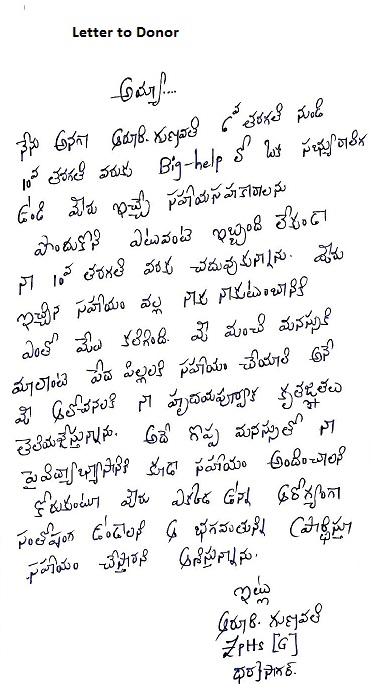 Letter to Donor
అమ్మా....
నేను అనగా ఆరూరి. గుణవతి 6వ తరగతి నుండి
10వ తరగతి వరుకు Big-help లో ఒక సభ్యురాలిగ
ఉండి మీరు ఇచ్చే సహాయసహకారాలను
పొందుకొని ఎటువంటి ఇబ్బంది లేకుండా
నా 10వ తరగతి వరకు చదువుకున్నాను. మీరు
ఇచ్చిన సహాయం వల్ల నాకు నాకుటుంబానికి
ఎంతో మేలు కలిగింది. మీ మంచి మనస్సుకి
మాలాంటి పేద పిల్లలకి సహాయం చేయాలి అనే
మీ ఆలోచనలకి నా హృదయపూర్వక కృతజ్ఞతలు
తెలియజేస్తున్నాను. అదే గొప్ప మనస్సుతో నా
పైవిద్యాభ్యాసానికి కూడా సహాయం అందించాలని
కోరుకుంటూ మీరు ఎక్కడ ఉన్న ఆరోగ్యంగా
సంతోషంగ ఉండాలని ఆ భగవంతున్ని ప్రార్థిస్తూ
సహాయం చేస్తారని ఆశిస్తున్నాను.
ఇట్లు
ఆరూరి. గుణవతి
ZPHS [G]
ధర్మసాగర్.